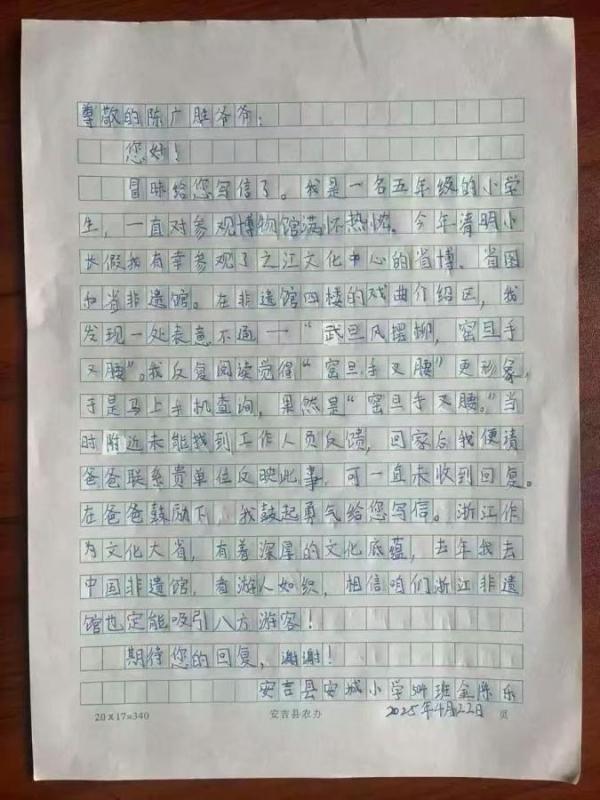 尊敬的陈广胜爷爷：
您好！
冒昧给您写信了。我是一名五年级的小学
生，一直对参观博物馆满怀热忱。今年清明小
长假我有幸参观了之江文化中心的省博、省图
和省非遗馆。在非遗馆四楼的戏曲介绍区，我
发现一处表意不通一“武旦风摆柳，窑旦手
叉腰”。我反复阅读觉得“窑旦手叉腰”更形象，
于是马上手机查询，果然是“窑旦手叉腰。”当
时附近未能找到工作人员反馈，回家后我便请
爸爸联系贵单位反映此事，可一直未收到回复。
在爸爸鼓励下，我鼓起勇气给您写信。浙江作
为文化大省，有着深厚的文化底蕴，去年我去
中国非遗馆，看游人如织，相信咱们浙江非遗
馆也定能吸引八方游客！
期待您的回复，谢谢！
安吉县安城小学 班金陈乐
20×17=340 安吉县农办 2025年4月22日 页